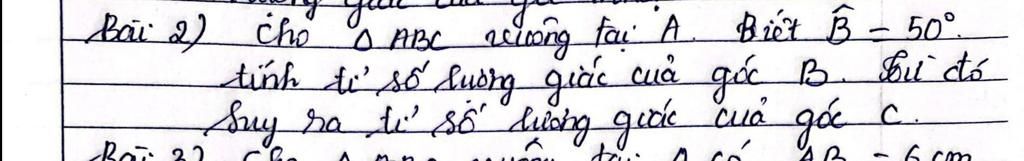 Bài 2) Cho △ ABC vuông tại A. Biết B̂ = 50°.
tính tỉ số lượng giác của góc B. Từ đó
suy ra tỉ số lượng giác của góc C.
Bài 3) Cho vuông tại A có AB = 6 cm